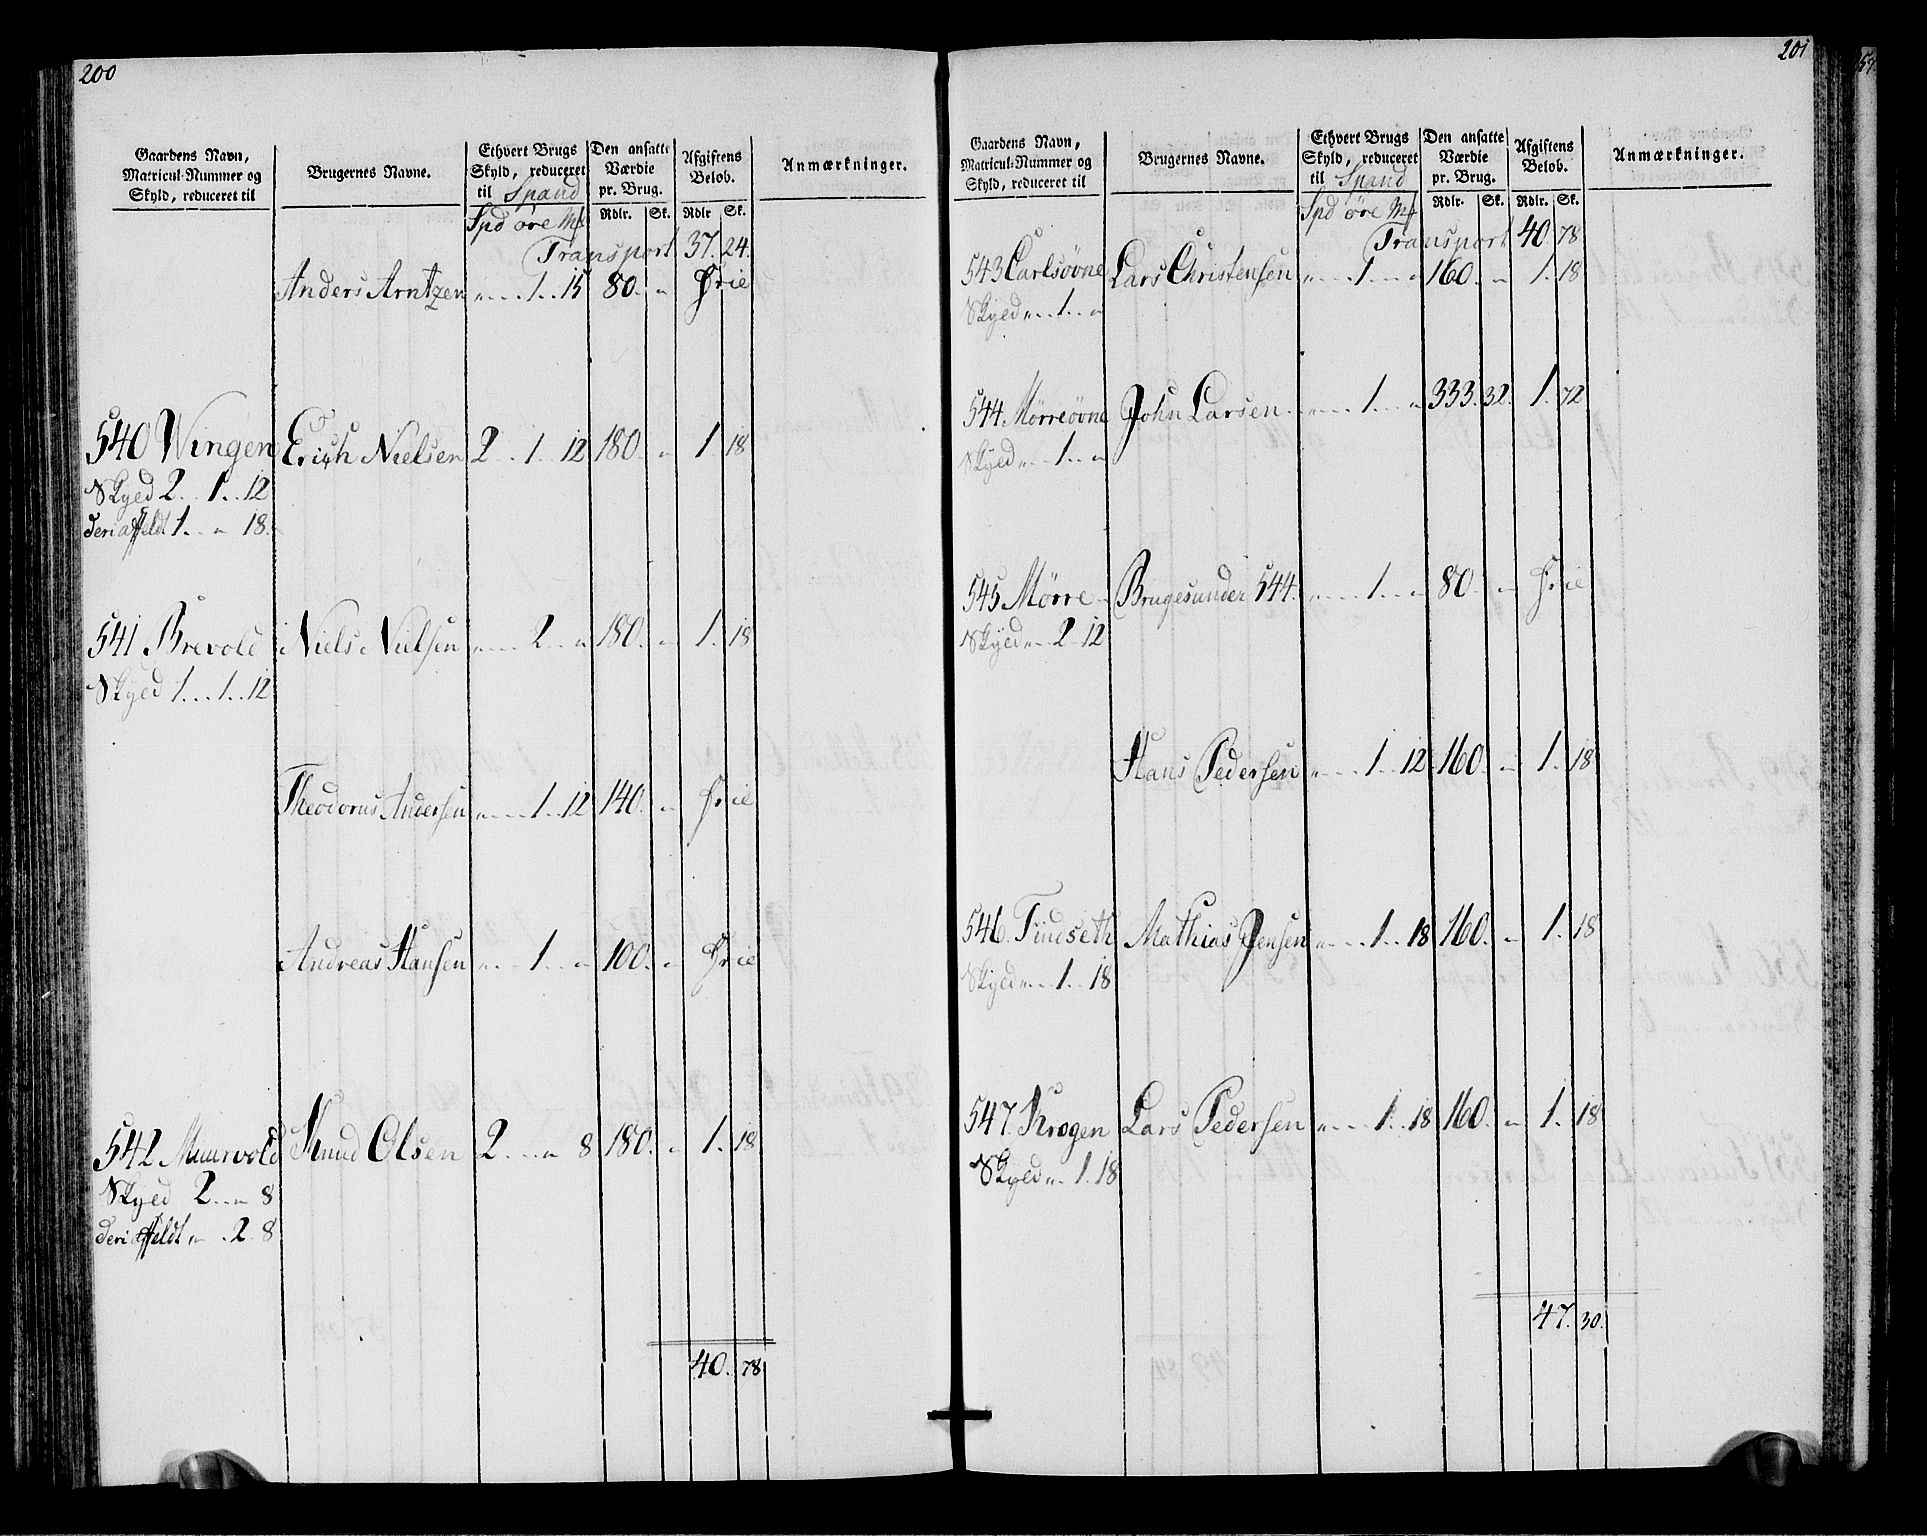 200
Gaardens Navn, Matricul-Nummer og Skyld, reduceret til
Brugernes Navne.
Ethvert Brugs Skyld, reduceret til Spand
Den ansatte Værdie pr. Brug.
Afgiftens Beløb.
Anmærkninger.
Spd øre Mk Rdlr. Sk. Rdlr Sk.
Transport 37. 24.
Anders Arntzen „ 1 15 80. „ Frie
540 Wingen Erich Nielsen 2 1 12 180. „ 1 18
Skyld 2 1 12
deri affeldt 1 „ 18.
541 Brevold Niels Nielsen „ 2 „ 180. „ 1. 18
Skyld 1 1 12
Theodorus Andersen „ 1 12 140. „ Frie
Andreas Hansen „ 1 „ 100. „ Frie
542 Muurvold Knud Olsen 2 „ 8 180. „ 1. 18
Skyld 2 „ 8
deri affeldt „ 2 8
40. 78
201
Gaardens Navn, Matricul-Nummer og Skyld, reduceret til
Brugernes Navne.
Ethvert Brugs Skyld, reduceret til Spand
Den ansatte Værdie pr. Brug.
Afgiftens Beløb.
Anmærkninger.
Spd øre Mk Rdlr. Sk. Rdlr. Sk.
Transport 40. 78
543 Carlsøvne Lars Christensen „ 1 „ 160. „ 1. 18
Skyld „ 1 „
544. Mørreøvne John Larsen „ 1 „ 333. 32. 1. 72
Skyld „ 1 „
545 Mørre Bruges under 544. „ 1 „ 80. „ Frie
Skyld „ 2 12
Hans Pedersen „ 1 12 160. „ 1. 18
546. Tiudseth Mathias Jensen „ 1 18 160. „ 1. 18
Skyld „ 1 18
547. Krogen Lars Pedersen „ 1 18 160. „ 1. 18
Skyld „ 1 18
47. 30.